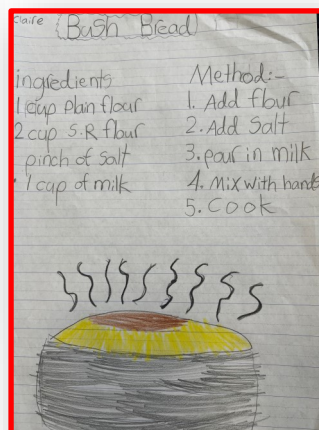 Claire
Bush Bread
ingredients
1 cup plain flour
2 cup S.R flour
pinch of salt
1 cup of milk
Method:-
1. Add flour
2. Add Salt
3. pour in milk
4. Mix with hands
5. Cook